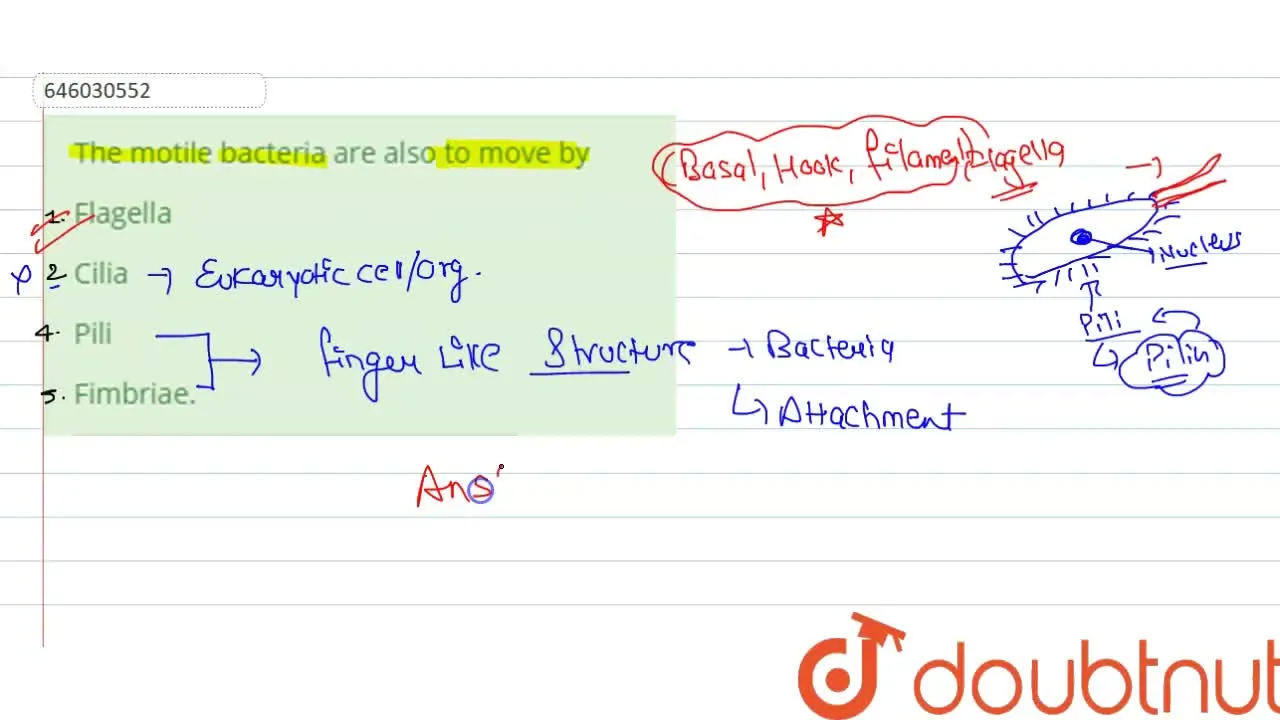 646030552
The motile bacteria are also to move by
(Basal, Hook, filament) Flagella →
1. Flagella
Nucleus
2 Cilia → Eukaryotic cell/org.
4. Pili
Pili
finger Like Structure → Bacteria
Pilin
5. Fimbriae.
↳ Attachment
Ans
doubtnut